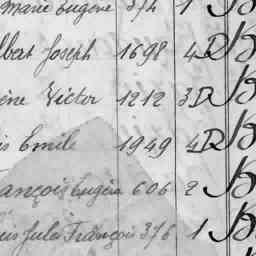 Marie Eugène 374 1 B
lbert Joseph 1698 4D B
ène Victor 1212 3D B
is Emile 1949 4D B
ançois Eugène 606 2 B
uis Jules François 376 1 B